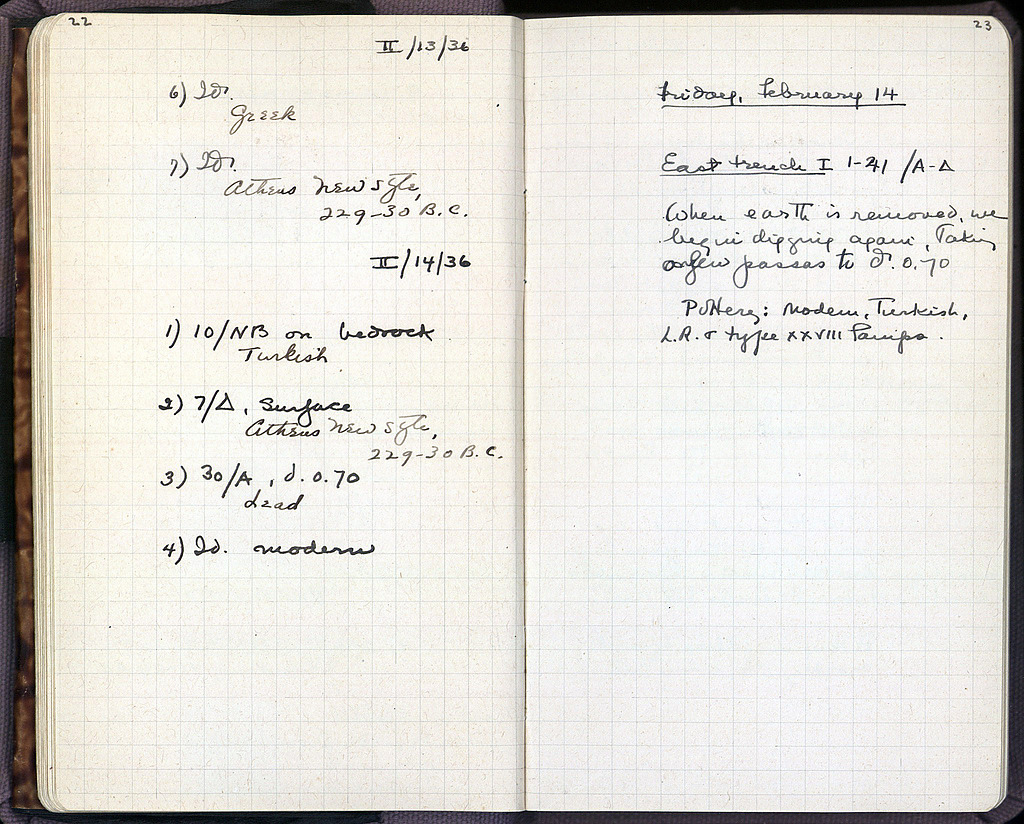 22
II/13/36
6) Id.
Greek
7) Id.
Athens New Style,
229-30 B.C.
II/14/36
1) 10/NB on bedrock
Turkish
2) 7/Δ, Surface
Athens New Style,
229-30 B.C.
3) 30/A, d. 0.70
Lead
4) Id. modern
23
Friday, February 14
East trench I 1-41 /A-Δ
When earth is removed, we
begin digging again, Taking
a few passes to d. 0.70
Pottery: Modern, Turkish,
L.R. & type XXVIII Lamps.